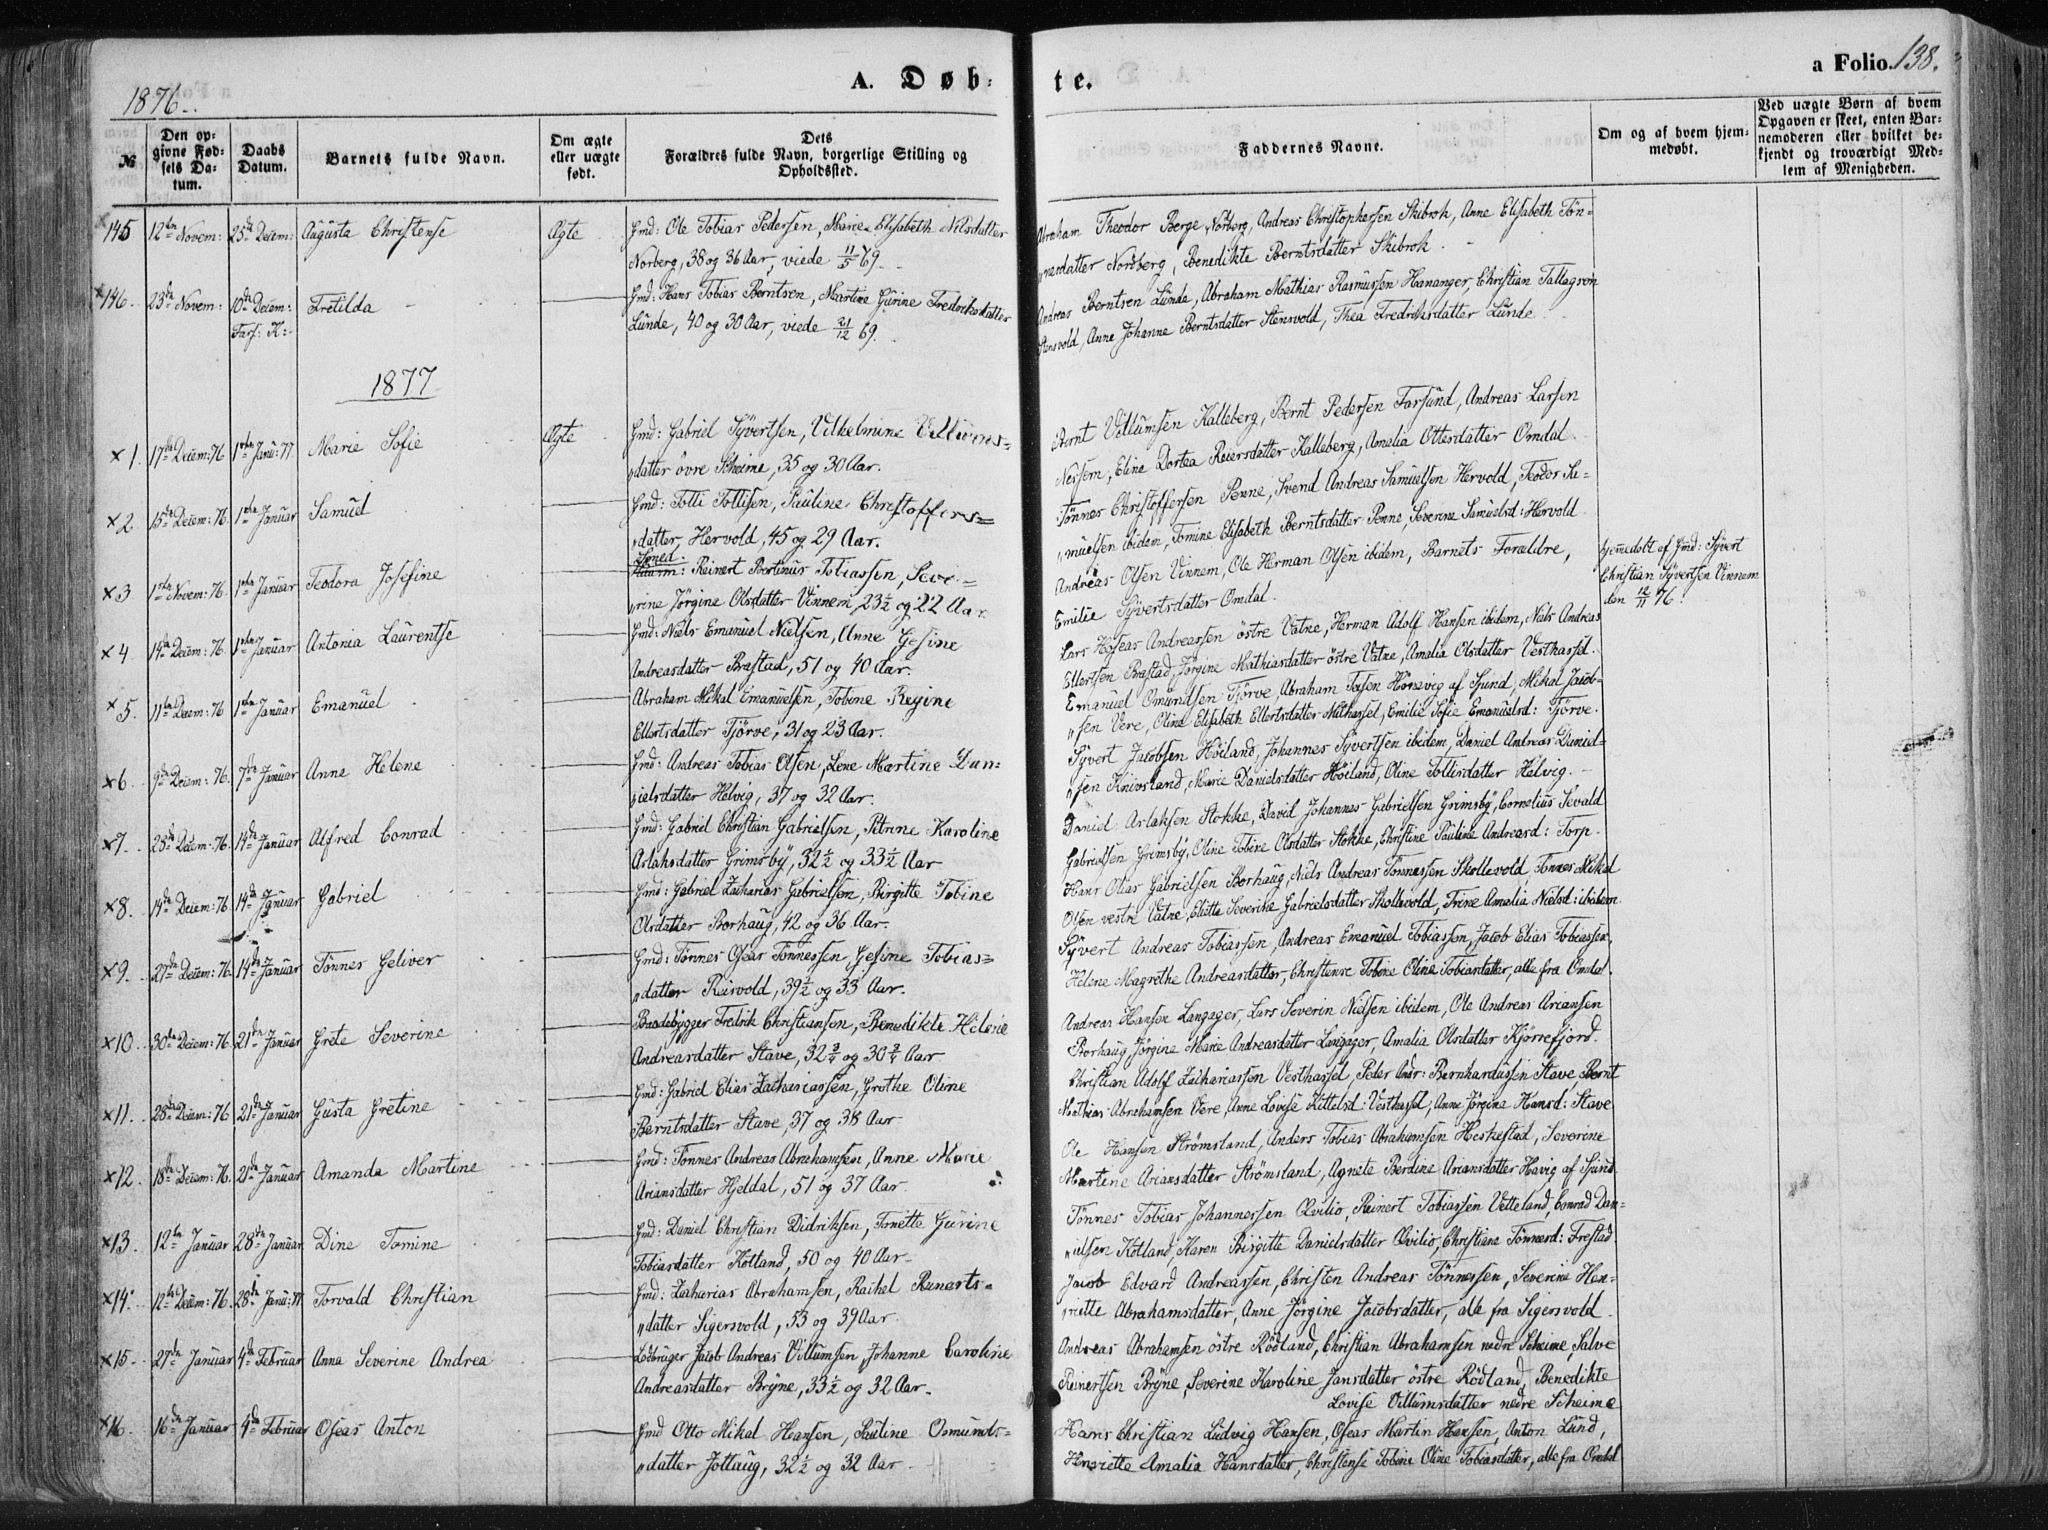 A. Døb-
te.
a Folio 138.
1876.
№
Den op-
givne Fød-
sels Da-
tum.
Daabs
Datum.
Barnets fulde Navn.
Om ægte
eller uægte
født.
Dets
Forældres fulde Navn, borgerlige Stilling og
Opholdssted.
Faddernes Navne.
Om og af hvem hjem-
medøbt.
Ved uægte Børn af hvem
Opgaven er skeet, enten Bar-
nemoderen eller hvilket be-
kjendt og troværdigt Med-
lem af Menigheden.
145 12te Novem: 25de Decem: Augusta Christense Ægte Gmd: Ole Tobias Pedersen, Marie Elisabeth Nilsdatter
Norberg, 38 og 36 Aar, viede 11/5 69.
Abraham Theodor Berge, Norberg, Andreas Christophersen Skibrok, Anne Elisabeth Tøn-
nesdatter Nordberg, Benedikte Berntsdatter Skibrok.
146. 23de Novem: 10de Decem: Fars: K: Tretilda Gmd: Hans Tobias Berntsen, Martine Gurine Fredriksdatter
Lunde, 40 og 30 Aar, viede 21/12 69.
Andreas Berntsen Lunde, Abraham Mathias Rasmussen Hananger, Christian Tallagsen
Stensvold, Anne Johanne Berntsdatter Stensvold, Thea Fredriksdatter Lunde
1877
1. 17de Decem: 76 1ste Janu: 77 Marie Sofie Ægte Gmd: Gabriel Syvertsen, Vilhelmine Villums-
datter övre Scheime, 35 og 30 Aar.
Bernt Villumsen Kalleberg, Bernt Pedersen Farsund, Andreas Larsen
Nissem, Eline Dortea Reiersdatter Kalleberg, Amalia Ottesdatter Omdal.
2. 15de Decem: 76. 1ste Januar Samuel Gmd: Tolli Tollisen, Pauline Christoffers-
datter, Hervold, 45 og 29 Aar.
Tönnes Christoffersen Penne, Svend Andreas Samuelsen Hervold, Teodor Sa-
muelsen ibidem, Tomine Elisabeth Berntsdatter Penne, Severine Samuelsd: Hervold
3 1ste Novem: 76. 1ste Januar Teodora Josefine Smed: Reinert Bertinus Tobiassen, Seve-
rine Jörgine Olsdatter Vinnem, 23½ og 22 Aar.
Andreas Olsen Vinnem, Ole Herman Olsen ibidem, Barnets Forældre,
Emilie Syvertsdatter Omdal.
hjemedöbt af Gmd: Syvert
Christian Syvertsen Vinnem
den 12/11 76.
4 14de Decem: 76. 1ste Januar Antonia Laurentse Gmd: Niels Emanuel Nielsen, Anne Gesine
Andreasdatter Brastad, 51 og 40 Aar.
Lars Hoseas Andreassen östre Vatne, Herman Adolf Hansen ibidem, Niels Andreas
Ellertsen Brastad, Jörgine Mathiasdatter östre Vatne, Amalia Olsdatter Vesthassel.
5. 11te Decem: 76 1ste Januar Emanuel Abraham Mikal Emanuelsen, Tobine Regine
Ellertsdatter Tjörve, 31 og 23 Aar.
Emanuel Omundsen Tjörve, Abraham Hörsvig af Spind, Mikal Jacob-
sen Vere, Oline Elisabeth Ellertsdatter Midhassel, Emilie Sofie Emanuelsd: Tjörve.
6. 9de Decem: 76. 7de Januar Anne Helene Gmd: Andreas Tobias Olsen, Lene Martine Dan-
ielsdatter Helvig, 37 og 32 Aar.
Syvert Jacobsen Höiland, Johannes Syvertsen ibidem, Daniel Andreas Daniel-
sen Knivsland, Marie Danielsdatter Höiland, Oline Tollisdatter Helvig.
7. 28de Decem: 76. 14de Januar Alfred Conrad Gmd: Gabriel Christian Gabrielsen, Petrine Karoline
Aslaksdatter Grimsby, 32½ og 33½ Aar
Daniel Aslaksen Stokke, David Johannes Gabrielsen Grimsby, Cornelius Sevald
Gabrielsen Grimsby, Oline Tobine Olsdatter Stokke, Christine Pauline Andreasd: Torp.
8. 14de Decem: 76 14de Januar Gabriel Gmd: Gabriel Zacharias Gabrielsen, Birgitte Tobine
Olsdatter Borhaug, 42 og 36 Aar.
Hans Olias Gabrielsen Borhaug, Niels Andreas Tönnessen Skollevold, Tönnes Mikal
Olsen vestre Vatne, Eliette Severine Gabrielsdatter Skollevold, Trine Amalia Nielsd: ibidem.
9. 27de Decem: 76. 14de Januar Tönnes Geliver Gmd: Tönnes Oseas Tönnessen, Gesine Tobias-
datter Reirvold, 39½ og 33 Aar.
Syvert Andreas Tobiassen, Andreas Emanuel Tobiassen, Jacob Elias Tobiassen,
Helene Magrethe Andreasdatter, Christense Tobine Oline Tobiasdatter, alle fra Omdal.
10. 30de Decem: 76. 21de Januar Grete Severine Baadebygger Fredrik Christiansen, Benedikte Helene
Andreasdatter Stave, 32¾ og 30¾ Aar
Andreas Hansen Langager, Lars Severin Nielsen ibidem, Ole Andreas Ariansen
Borhaug Jörgine Marie Andreasdatter Langager, Amalia Olsdatter Kjörrefjord.
11. 28de Decem: 76 21de Januar Gusta Gretine Gmd: Gabriel Elias Zachariassen, Grethe Oline
Berntsdatter Stave, 37 og 38 Aar
Christian Adolf Zachariassen Vesthassel, Peder Andr: Bernhardussen Stave, Bernt
Mathias Abrahamsen Vere, Anne Lovise Kittelsd: Vesthassel, Anne Jörgine Hansd: Stave
12. 18de Decem: 76. 21de Januar Amanda Martine Gmd: Tönnes Andreas Abrahamsen, Anne Marie
Ariansdatter Hjeldal, 51 og 37 Aar.
Ole Hansen Strömsland, Anders Tobias Abrahamsen Heskestad, Severine
Martene Ariansdatter Strömsland, Agnete Berdine Ariansdatter Havig af Spind.
13. 12te Januar 28de Januar Dine Tomine Gmd: Daniel Christian Didriksen, Tonette Gurine
Tobiasdatter Kotland, 50 og 40 Aar.
Tönnes Tobias Johannessen Qvilio, Reinert Tobiassen Vetteland, Conrad Dan-
ielsen Kotland, Karen Birgitte Danielsdatter Qvilio, Christiane Tönnesd: Frestad.
14. 12te Decem: 76. 28de Janu: 77 Torvald Christian Gmd: Zacharias Abrahamsen, Rachel Runarts-
datter Sigersvold, 53 og 39 Aar.
Jacob Edvard Andreassen, Christen Andreas Tönnessen, Severine Hen-
riette Abrahamsdatter, Anne Jörgine Jacobsdatter, alle fra Sigersvold.
15. 27de Januar 4de Februar Anna Severine Andrea Lodbruger Jacob Andreas Villumsen, Johanne Caroline
Andreasdatter Bryne, 33½ og 32 Aar.
Andreas Abrahamsen östre Rödland, Christian Abrahamsen nedre Scheime, Salve
Reinertsen Bryne, Severine Karoline Jansdatter östre Rödland, Benedikte
Lovise Villumsdatter nedre Scheime
16. 16de Januar 4de Februar Oseas Anton Gmd Otto Mikal Hansen, Pauline Osmunds-
datter Jöllaug, 32½ og 32 Aar.
Hans Christian Ludvig Hansen, Oseas Martin Hansen, Anton Lund,
Henriette Amalia Hansdatter, Christense Tobine Oline Tobiasdatter, alle fra Omdal